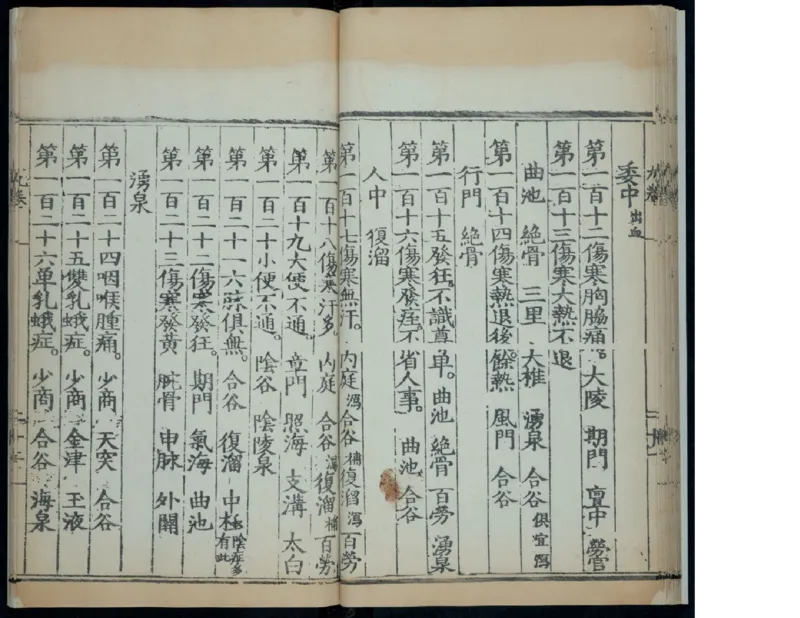 委中出血
第一百十二傷寒胸脇痛。大陵 期門 膻中 勞宮
第一百十三傷寒大熱不退
曲池 絕骨 三里 大椎 湧泉 合谷俱宜瀉
第一百十四傷寒熱退後餘熱 風門 合谷
行門 絕骨
第一百十五發狂。不識尊卑。曲池 絕骨 百勞 湧泉
第一百十六傷寒發痓。不省人事。 曲池 合谷
人中 復溜
第一百十七傷寒無汗。 內庭瀉 合谷補 復溜瀉 百勞
第一百十八傷寒汗多。 內庭 合谷瀉 復溜補 百勞
第一百十九大便不通。 章門 照海 支溝 太白
第一百二十小便不通。 陰谷 陰陵泉
第一百二十一六脉俱無。 合谷 復溜 中極陰症多有此
第一百二十二傷寒發狂。 期門 氣海 曲池
第一百二十三傷寒發黄 腕骨 申脉 外關
湧泉
第一百二十四咽喉腫痛。 少商 天突 合谷
第一百二十五雙乳蛾症。 少商 金津 玉液
第一百二十六单乳蛾症。 少商 合谷 海泉